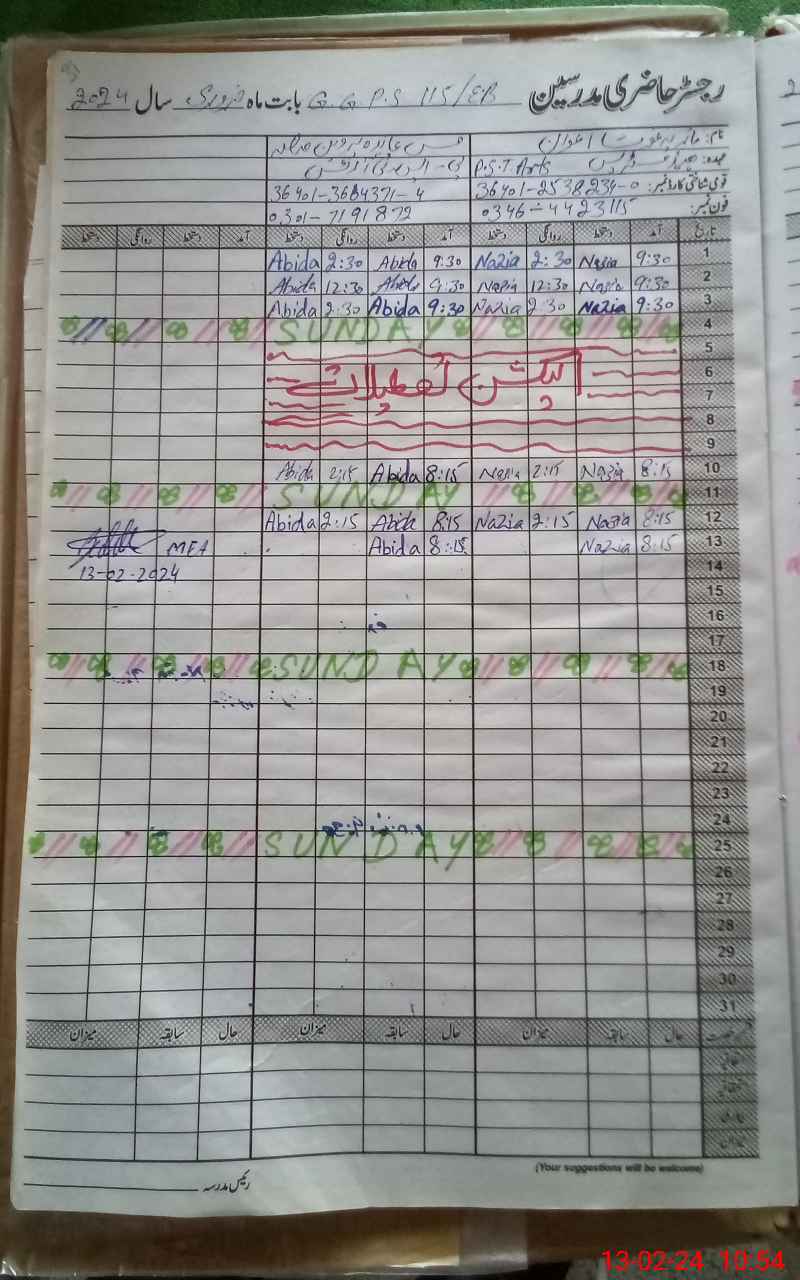 رجسٹر حاضری مدرسین G.G.P.S 115/EB بابت ماہ فروری سال 2024
نام:
عہدہ: P.S.T Arts
قومی شناختی کارڈ نمبر: 36401-2538234-0 36401-3684371-4
فون نمبر: 0346-4423115 0301-7191872
تاریخ آمد دستخط روانگی دستخط آمد دستخط روانگی دستخط آمد دستخط روانگی دستخط
1 9:30 Nazia 2:30 Nazia 9:30 Abida 2:30 Abida
2 9:30 Nazia 12:30 Nazia 9:30 Abida 12:30 Abida
3 9:30 Nazia 2:30 Nazia 9:30 Abida 2:30 Abida
4 SUNDAY
5
6 الیکشن تعطیلات
7
8
9
10 8:15 Nazia 2:15 Nazia 8:15 Abida 2:15 Abida
11 SUNDAY
12 8:15 Nazia 2:15 Nazia 8:15 Abida 2:15 Abida
13 8:15 Nazia 8:15 Abida MEA
14 13-02-2024
15
16
17
18 SUNDAY
19
20
21
22
23
24
25 SUNDAY
26
27
28
29
30
31
حال سابقہ میزان حال سابقہ میزان حال سابقہ میزان
(Your suggestions will be welcome)
رئیس مدرسہ
13-02-24 10:54